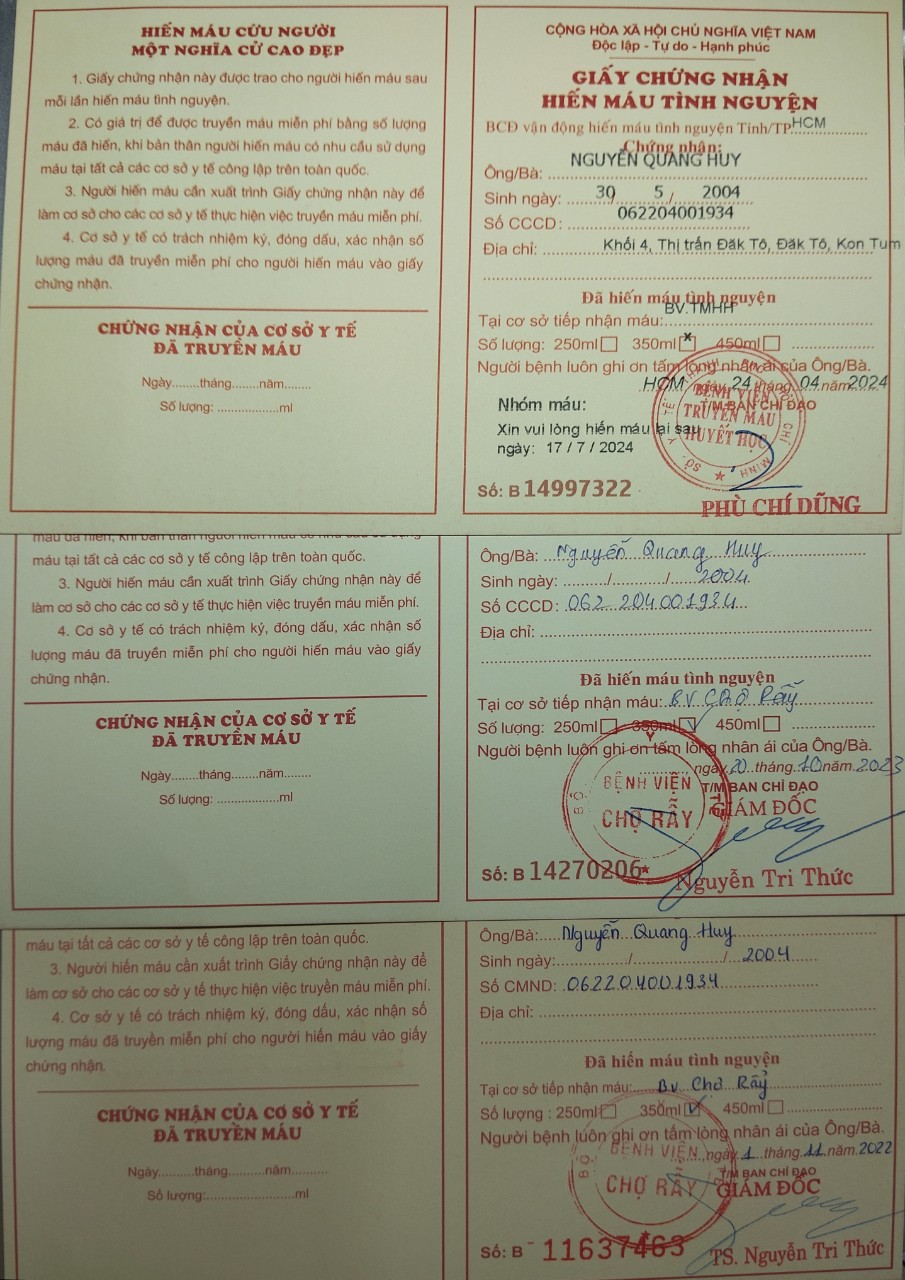 HIẾN MÁU CỨU NGƯỜI
MỘT NGHĨA CỬ CAO ĐẸP
1. Giấy chứng nhận này được trao cho người hiến máu sau
mỗi lần hiến máu tình nguyện.
2. Có giá trị để được truyền máu miễn phí bằng số lượng
máu đã hiến, khi bản thân người hiến máu có nhu cầu sử dụng
máu tại tất cả các cơ sở y tế công lập trên toàn quốc.
3. Người hiến máu cần xuất trình Giấy chứng nhận này để
làm cơ sở cho các cơ sở y tế thực hiện việc truyền máu miễn phí.
4. Cơ sở y tế có trách nhiệm ký, đóng dấu, xác nhận số
lượng máu đã truyền miễn phí cho người hiến máu vào giấy
chứng nhận.
CHỨNG NHẬN CỦA CƠ SỞ Y TẾ
ĐÃ TRUYỀN MÁU
Ngày........tháng........năm........
Số lượng: ..................ml
CỘNG HÒA XÃ HỘI CHỦ NGHĨA VIỆT NAM
Độc lập - Tự do - Hạnh phúc
GIẤY CHỨNG NHẬN
HIẾN MÁU TÌNH NGUYỆN
BCĐ vận động hiến máu tình nguyện Tỉnh/TP HCM
Chứng nhận:
Ông/Bà: NGUYỄN QUANG HUY
Sinh ngày: 30 / 5 / 2004
Số CCCD: 062204001934
Địa chỉ: Khối 4, Thị trấn Đăk Tô, Đăk Tô, Kon Tum
Đã hiến máu tình nguyện
Tại cơ sở tiếp nhận máu: BV.TMHH
Số lượng: 250ml 350ml x 450ml
Người bệnh luôn ghi ơn tấm lòng nhân ái của Ông/Bà.
HCM, ngày 24 tháng 04 năm 2024
T/M BAN CHỈ ĐẠO
Nhóm máu:
Xin vui lòng hiến máu lại sau
ngày: 17 / 7 / 2024
SỞ Y TẾ THÀNH PHỐ HỒ CHÍ MINH
BỆNH VIỆN
TRUYỀN MÁU
HUYẾT HỌC
Số: B 14997322
PHÙ CHÍ DŨNG
máu đã hiến, khi bản thân người hiến máu có nhu cầu sử dụng
máu tại tất cả các cơ sở y tế công lập trên toàn quốc.
3. Người hiến máu cần xuất trình Giấy chứng nhận này để
làm cơ sở cho các cơ sở y tế thực hiện việc truyền máu miễn phí.
4. Cơ sở y tế có trách nhiệm ký, đóng dấu, xác nhận số
lượng máu đã truyền miễn phí cho người hiến máu vào giấy
chứng nhận.
CHỨNG NHẬN CỦA CƠ SỞ Y TẾ
ĐÃ TRUYỀN MÁU
Ngày........tháng........năm........
Số lượng: ..................ml
Ông/Bà: Nguyễn Quang Huy
Sinh ngày: ........../............/ 2004
Số CCCD: 062 204001934
Địa chỉ:
Đã hiến máu tình nguyện
Tại cơ sở tiếp nhận máu: BV Chợ Rẫy
Số lượng: 250ml 350ml ✓ 450ml
Người bệnh luôn ghi ơn tấm lòng nhân ái của Ông/Bà.
ngày 20 tháng 10 năm 2023
T/M BAN CHỈ ĐẠO
GIÁM ĐỐC
BỘ Y TẾ
BỆNH VIỆN
CHỢ RẪY
Số: B 14270206
Nguyễn Tri Thức
máu tại tất cả các cơ sở y tế công lập trên toàn quốc.
3. Người hiến máu cần xuất trình Giấy chứng nhận này để
làm cơ sở cho các cơ sở y tế thực hiện việc truyền máu miễn phí.
4. Cơ sở y tế có trách nhiệm ký, đóng dấu, xác nhận số
lượng máu đã truyền miễn phí cho người hiến máu vào giấy
chứng nhận.
CHỨNG NHẬN CỦA CƠ SỞ Y TẾ
ĐÃ TRUYỀN MÁU
Ngày........tháng........năm........
Số lượng:....................ml
Ông/Bà: Nguyễn Quang Huy
Sinh ngày: ............/............/ 2004
Số CMND: 062204001934
Địa chỉ:
Đã hiến máu tình nguyện
Tại cơ sở tiếp nhận máu: Bv Chợ Rẫy
Số lượng : 250ml 350ml ✓ 450ml
Người bệnh luôn ghi ơn tấm lòng nhân ái của Ông/Bà.
ngày 1 tháng 11 năm 2022
T/M BAN CHỈ ĐẠO
GIÁM ĐỐC
BỘ Y TẾ
BỆNH VIỆN
CHỢ RẪY
Số: B - 11637463
TS. Nguyễn Tri Thức